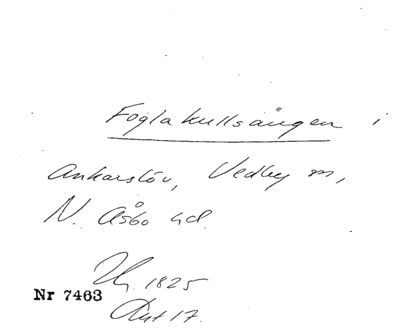 Foglakullsängen i
Ankarslöv, Vedby sn,
N. Åsbo hd.
1825
Nr 7463
Akt 17.